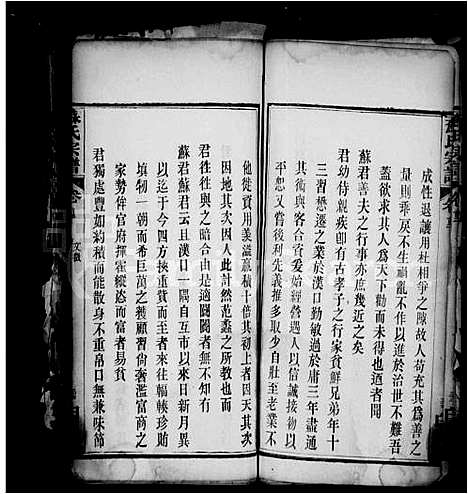 成性退讓用杜相爭之隙故人苟充其為善之
蓋欲求其人為天下勸而未得也
乖戾不生禍亂不作以進於治世不難吾
蘇君善夫之行事亦庶幾近之矣
君幼 親疾即有古孝子之行家貧鮮兄弟年十
三習懋遷之業於漢口勤敏過於庸三年盡通
其術與客合貲爰始經營遇人以信誠接物以
平恕又嘗後利先義推多取少自壯至老業不
他徙資用美溢贏積十倍其初上者因天其次
因地其次因人此計然范蠡之所教也而
君往往與之吻合由是適闤闠者無不知有
蘇君蘇君云且漢口一隅自互市以來日新月異
以迄于今四方挾重貲而至者來往輻輳珍貽
填牣一朝而希巨萬之獲顧習尚奢濫富商之
家勢侔官府揮霍縱恣而富者易貧
君獨處豐如約積而能散身不重帛口無兼味節
氏宗譜
卷
文